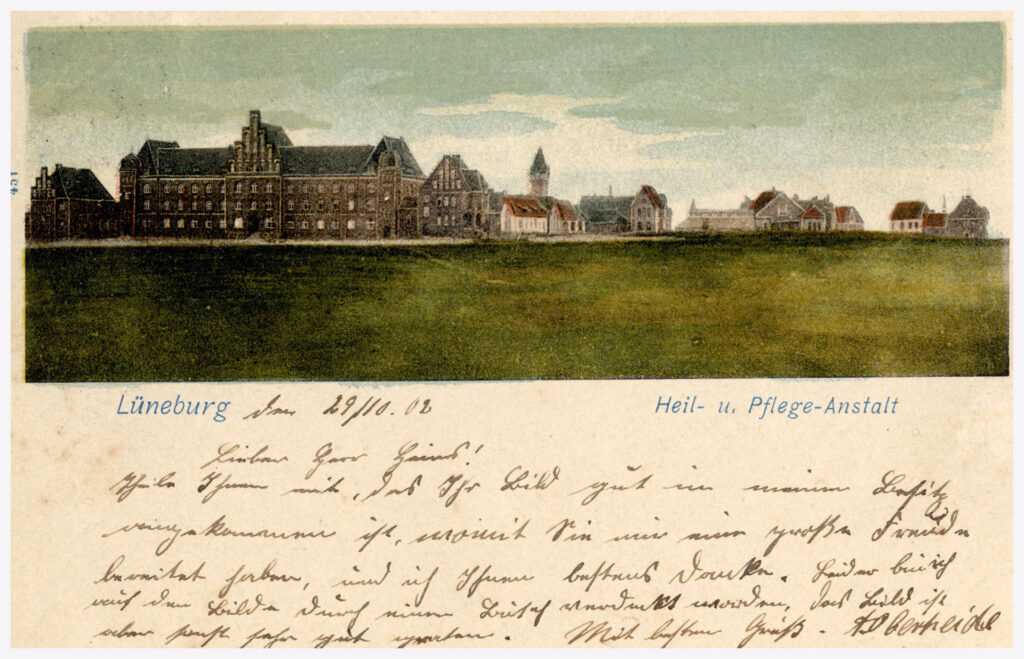 451
Lüneburg den 29/10.02
Heil- u. Pflege-Anstalt
Lieber Herr Heins!
Theile Ihnen mit, das Ihr Bild gut in meinen Besitz
angekommen ist, womit Sie mir eine große Freude
bereitet haben, und ich Ihnen bestens danke. Leider bin ich
auf den Bilde durch einen Busch verdeckt worden, das Bild ist
aber sonst sehr gut geraten. Mit besten Gruß.